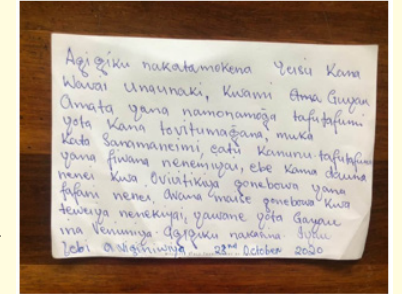 Agigiku nakatamokena Yeisu Kana
Wavai Unaunaki, Kwami Ama Guyau
Amata yana namonamoga tafutafumi
yota Kana tovitumagana, muka
Kata Sanamaneimi, Kanunu tafutafuna
yana fiwana nenemiyai, ebe Kama dauna
nenei Kwa Ovivitikiya gonebowa yana
fafani nenei, Avana maise gonebowa Kwa
teweiya nenekiyai, yawane yota Gayau
ina Venuniya. Agigiku nakaina
28nd October 2020